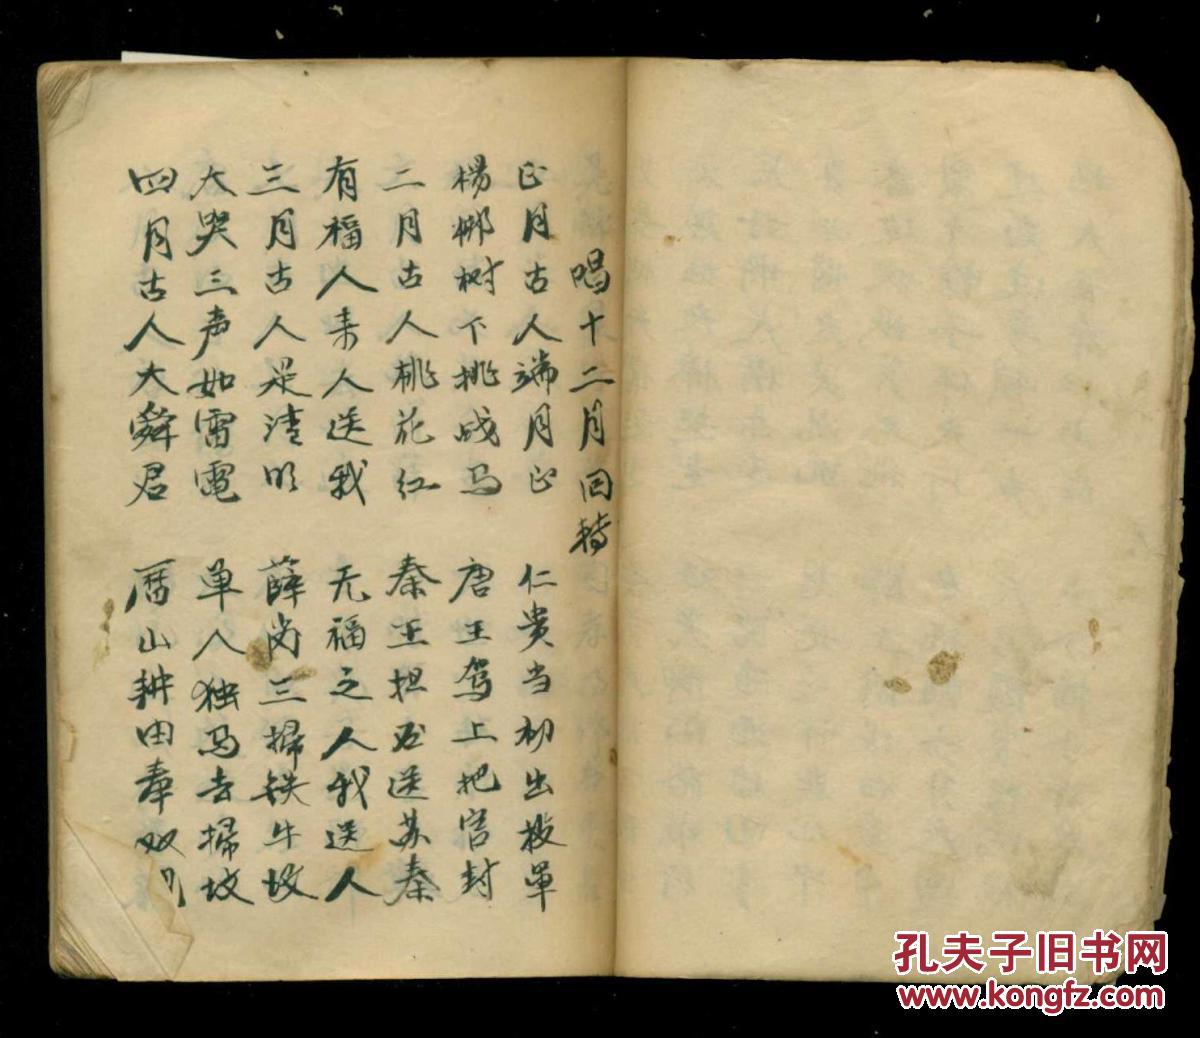 唱十二月回转
正月古人端月正 仁贵当初出投军
杨柳树下挑战马 唐王驾上把官封
二月古人桃花红 秦王担石送苏秦
有福人来人送我 无福之人我送人
三月古人是清明 薛岗三掃铁牛坟
大哭三声如雷电 单人独马去掃坟
四月古人大舜君 历山耕田奉双
孔夫子旧书网
www.kongfz.com